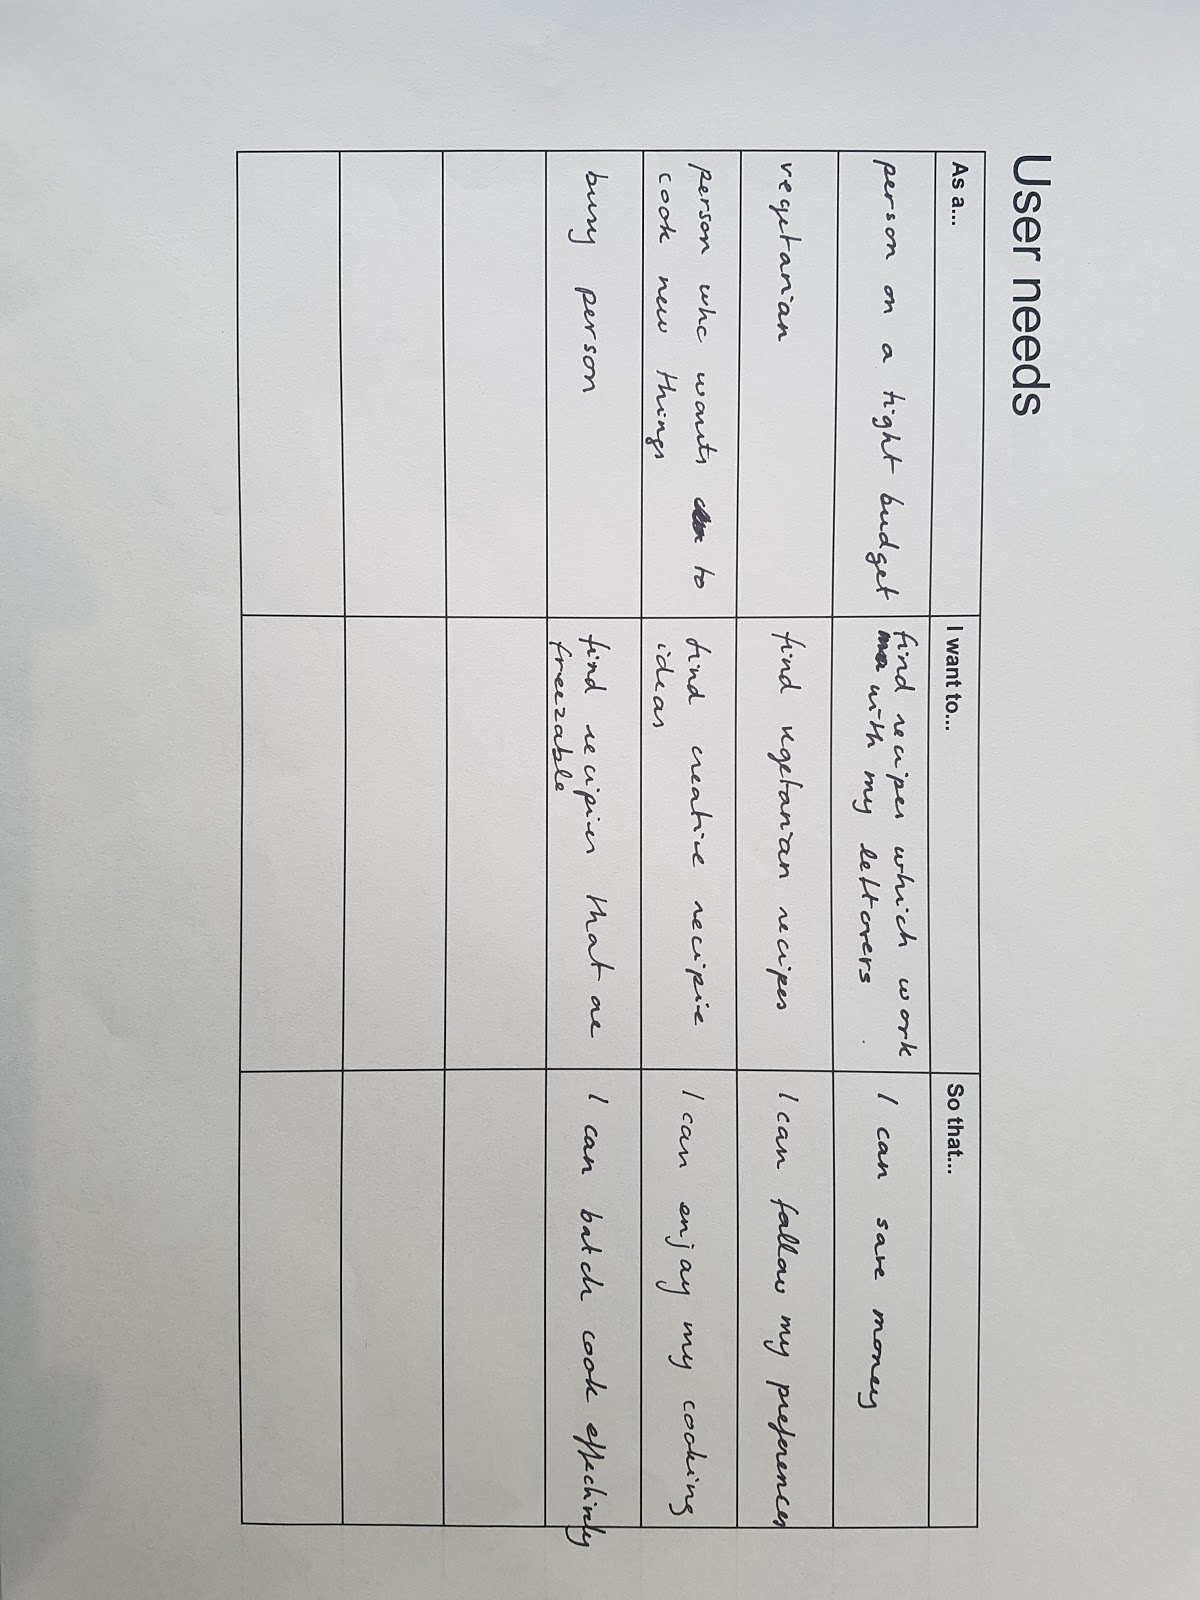 User needs
As a...
I want to...
So that...
person on a tight budget
find recipes which work
with my leftovers
I can save money
vegetarian
find vegetarian recipes
I can follow my preferences
person who wants to
cook new things
find creative recipie
ideas
I can enjoy my cooking
busy person
find recipies that are
freezable
I can batch cook effectively